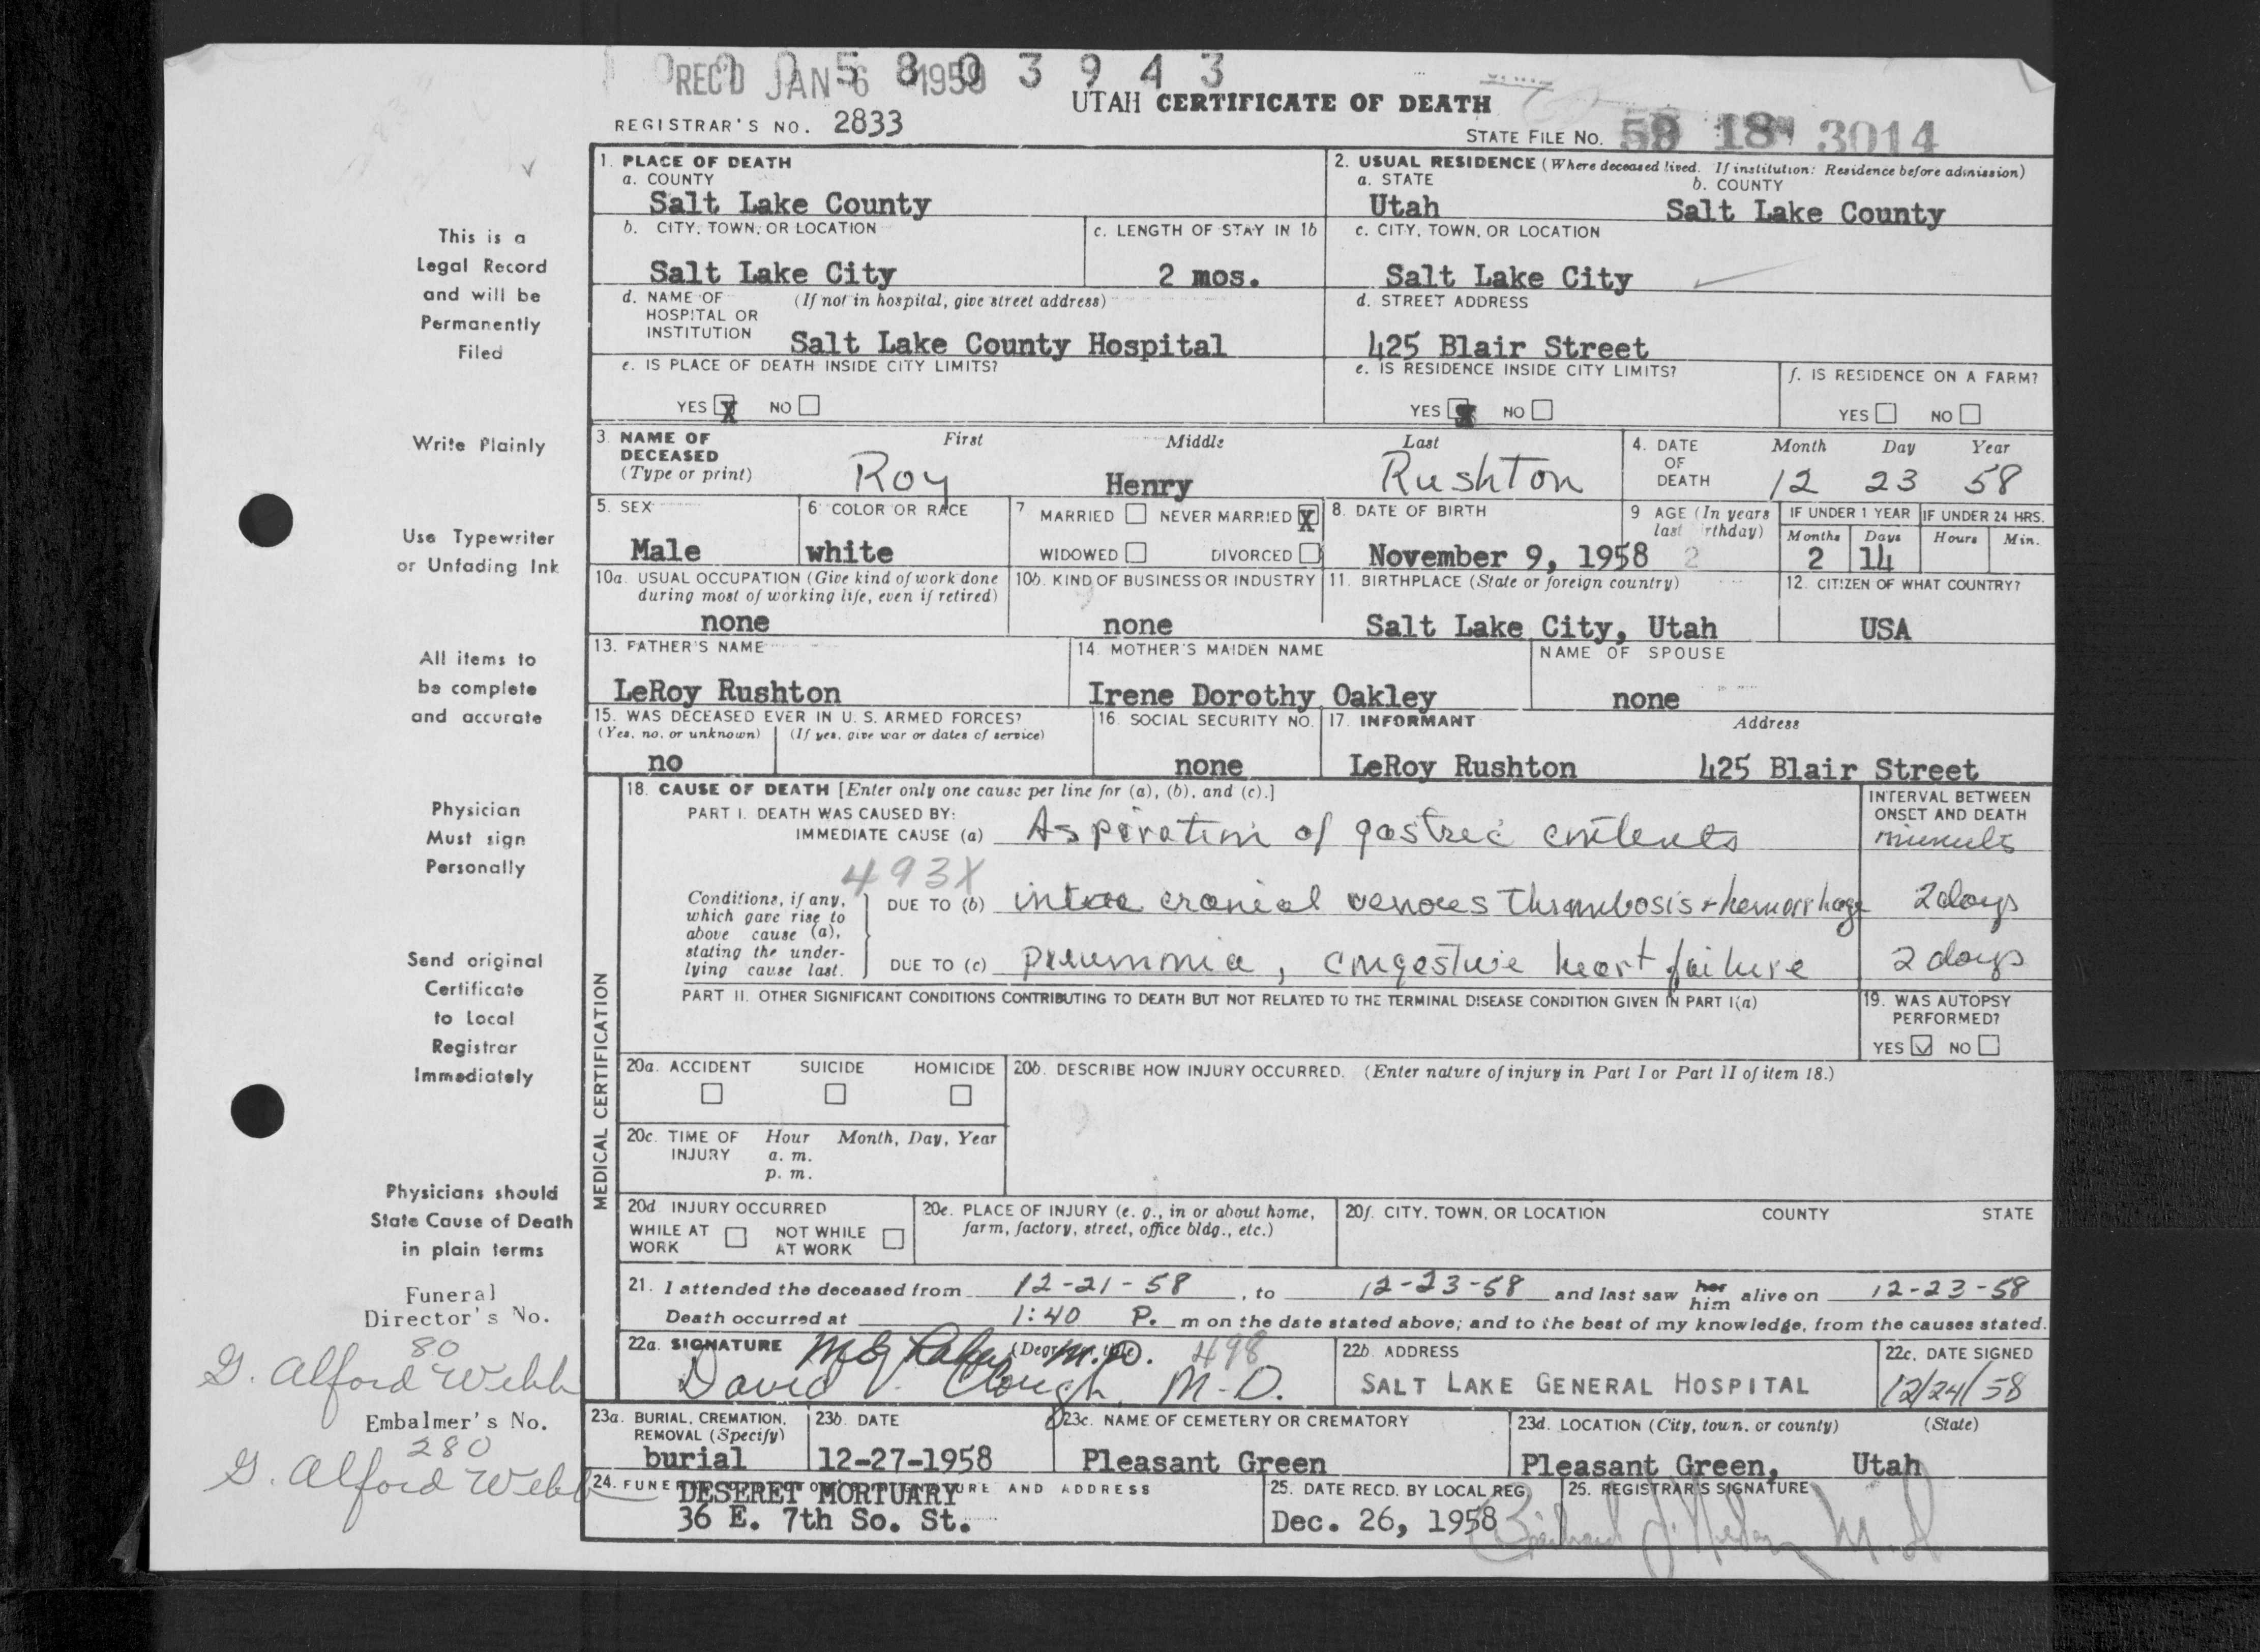 REC'D JAN 6 1959
5 8 0 3 9 4 3
UTAH CERTIFICATE OF DEATH
REGISTRAR'S NO. 2833
STATE FILE NO. 58 18 3014
1. PLACE OF DEATH
a. COUNTY
Salt Lake County
2. USUAL RESIDENCE (Where deceased lived. If institution: Residence before admission)
a. STATE b. COUNTY
Utah Salt Lake County
b. CITY, TOWN, OR LOCATION
Salt Lake City
c. LENGTH OF STAY IN 1b
2 mos.
c. CITY, TOWN, OR LOCATION
Salt Lake City
d. NAME OF (If not in hospital, give street address)
HOSPITAL OR
INSTITUTION Salt Lake County Hospital
d. STREET ADDRESS
425 Blair Street
e. IS PLACE OF DEATH INSIDE CITY LIMITS?
YES X NO
e. IS RESIDENCE INSIDE CITY LIMITS?
YES X NO
f. IS RESIDENCE ON A FARM?
YES NO
3. NAME OF DECEASED
(Type or print)
First Middle Last
Roy Henry Rushton
4. DATE OF DEATH
Month Day Year
12 23 58
5. SEX
Male
6. COLOR OR RACE
white
7 MARRIED NEVER MARRIED X
WIDOWED DIVORCED
8. DATE OF BIRTH
November 9, 1958
9 AGE (In years
last birthday)
2
IF UNDER 1 YEAR IF UNDER 24 HRS.
Months Days Hours Min.
2 14
10a. USUAL OCCUPATION (Give kind of work done
during most of working life, even if retired)
none
10b. KIND OF BUSINESS OR INDUSTRY
none
11. BIRTHPLACE (State or foreign country)
Salt Lake City, Utah
12. CITIZEN OF WHAT COUNTRY?
USA
13. FATHER'S NAME
LeRoy Rushton
14. MOTHER'S MAIDEN NAME
Irene Dorothy Oakley
NAME OF SPOUSE
none
15. WAS DECEASED EVER IN U. S. ARMED FORCES?
(Yes, no, or unknown) (If yes, give war or dates of service)
no
16. SOCIAL SECURITY NO.
none
17. INFORMANT Address
LeRoy Rushton 425 Blair Street
MEDICAL CERTIFICATION
18. CAUSE OF DEATH [Enter only one cause per line for (a), (b), and (c).]
INTERVAL BETWEEN
ONSET AND DEATH
PART I. DEATH WAS CAUSED BY:
IMMEDIATE CAUSE (a) Aspiration of gastric contents minutes
493X
Conditions, if any,
which gave rise to
above cause (a),
stating the under-
lying cause last.
DUE TO (b) intra cranial venous thrombosis + hemorrhage 2 days
DUE TO (c) pneumonia, congestive heart failure 2 days
PART II. OTHER SIGNIFICANT CONDITIONS CONTRIBUTING TO DEATH BUT NOT RELATED TO THE TERMINAL DISEASE CONDITION GIVEN IN PART I(a)
19. WAS AUTOPSY
PERFORMED?
YES ✓ NO
20a. ACCIDENT SUICIDE HOMICIDE
20b. DESCRIBE HOW INJURY OCCURRED. (Enter nature of injury in Part I or Part II of item 18.)
20c. TIME OF INJURY Hour Month, Day, Year
a. m.
p. m.
20d. INJURY OCCURRED
WHILE AT WORK NOT WHILE AT WORK
20e. PLACE OF INJURY (e. g., in or about home,
farm, factory, street, office bldg., etc.)
20f. CITY, TOWN, OR LOCATION COUNTY STATE
21. I attended the deceased from 12-21-58, to 12-23-58 and last saw her him alive on 12-23-58
Death occurred at 1:40 P. m on the date stated above; and to the best of my knowledge, from the causes stated.
22a. SIGNATURE M.D. 498
David V. Clough, M.D.
22b. ADDRESS
SALT LAKE GENERAL HOSPITAL
22c. DATE SIGNED
12/24/58
23a. BURIAL, CREMATION,
REMOVAL (Specify)
burial
23b. DATE
12-27-1958
23c. NAME OF CEMETERY OR CREMATORY
Pleasant Green
23d. LOCATION (City, town, or county) (State)
Pleasant Green, Utah
24. FUNERAL DIRECTOR'S SIGNATURE AND ADDRESS
DESERET MORTUARY
36 E. 7th So. St.
25. DATE RECD. BY LOCAL REG.
Dec. 26, 1958
25. REGISTRAR'S SIGNATURE
This is a
Legal Record
and will be
Permanently
Filed
Write Plainly
Use Typewriter
or Unfading Ink
All items to
be complete
and accurate
Physician
Must sign
Personally
Send original
Certificate
to Local
Registrar
Immediately
Physicians should
State Cause of Death
in plain terms
Funeral
Director's No.
80
G. Alford Webb
Embalmer's No.
280
G. Alford Webb